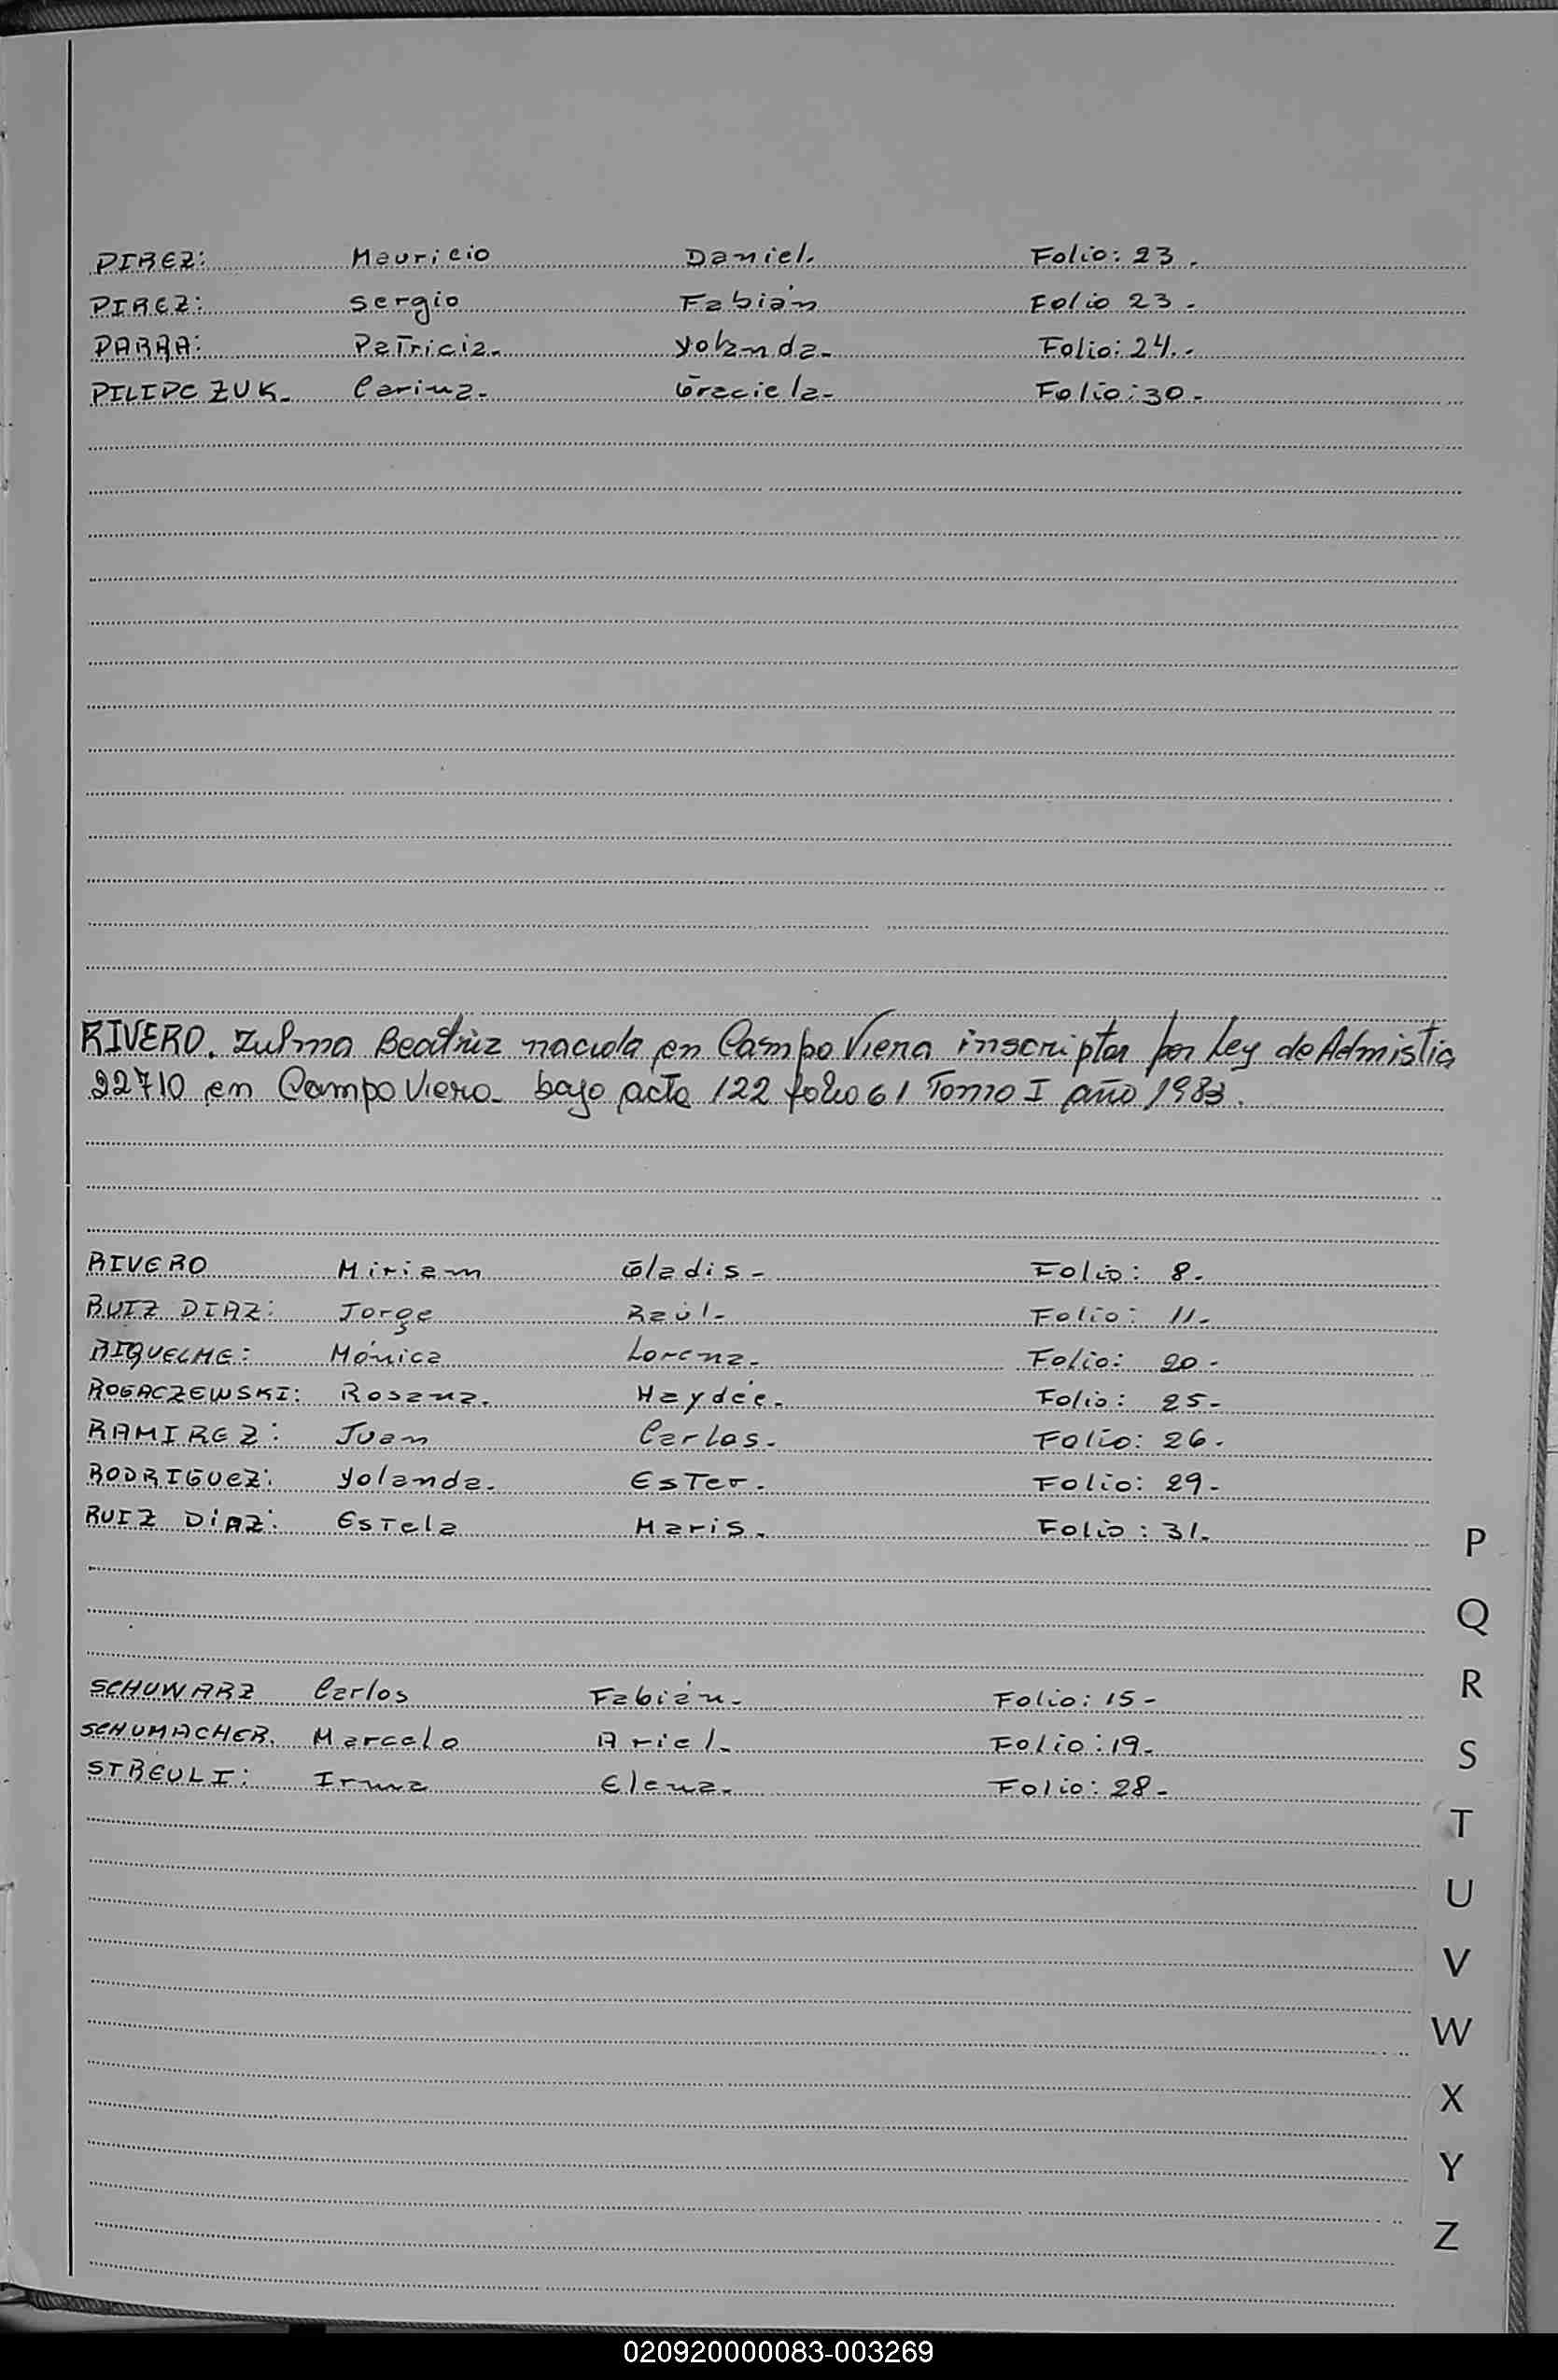 PIREZ: Mauricio Daniel. Folio: 23.
PIREZ: Sergio Fabián Folio 23.
PARRA: Patricia. Yolanda. Folio: 24.-
PILIPCZUK. Carina. Graciela. Folio: 30-
RIVERO. Zulma Beatriz nacida en Campo Viera inscripta por Ley de Admistia
22710 en Campo Viera. bajo acta 122 folio 61 Tomo I año 1983.
RIVERO Miriam Gladis- Folio: 8.
RUIZ DIAZ: Jorge Raúl- Folio: 11-
RIQUELME: Mónica Lorena- Folio: 20-
ROGACZEWSKI: Rosana. Haydée. Folio: 25-
RAMIREZ: Juan Carlos. Folio: 26.
RODRIGUEZ: Yolanda. Ester. Folio: 29-
RUIZ DíAZ: Estela Maris. Folio: 31-
P
Q
SCHUWARZ Carlos Fabián- Folio: 15-
R
SCHUMACHER. Marcelo Ariel- Folio: 19-
S
STREULI: Irma Elena- Folio: 28-
T
U
V
W
X
Y
Z
020920000083-003269